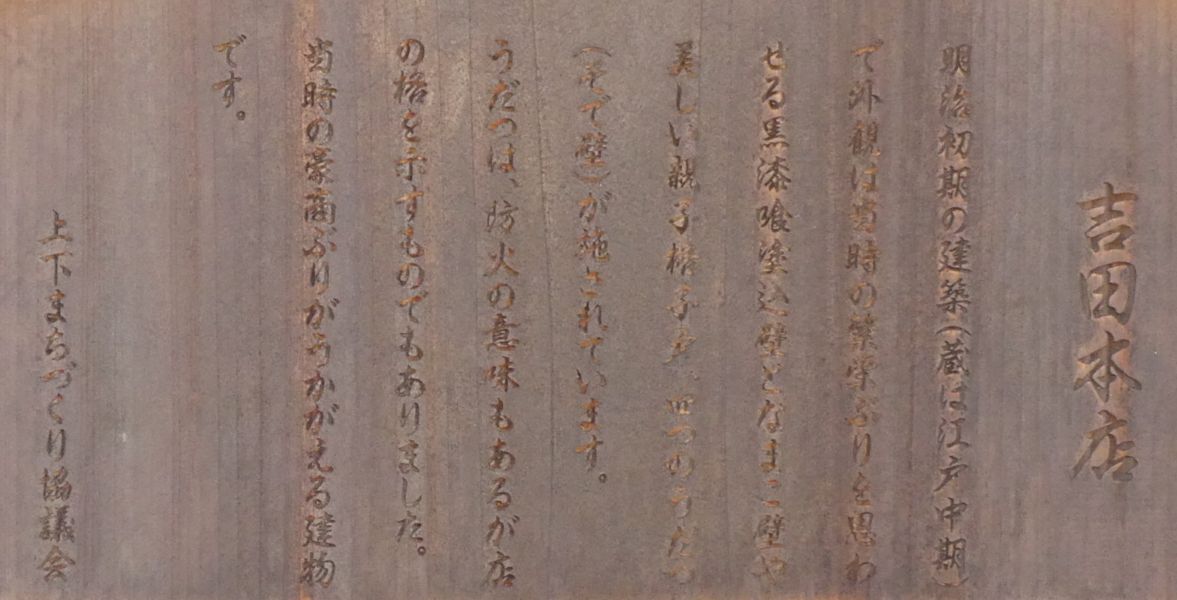 吉田本店
明治初期の建築(蔵は江戸中期)
で外観は当時の繁栄ぶりを思わ
せる黒漆喰塗込壁となまこ壁や
美しい親子格子戸、四つのうだつ
(そで壁)が施されています。
うだつは、防火の意味もあるが店
の格を示すものでもありました。
当時の豪商ぶりがうかがえる建物
です。
上下まちづくり協議会